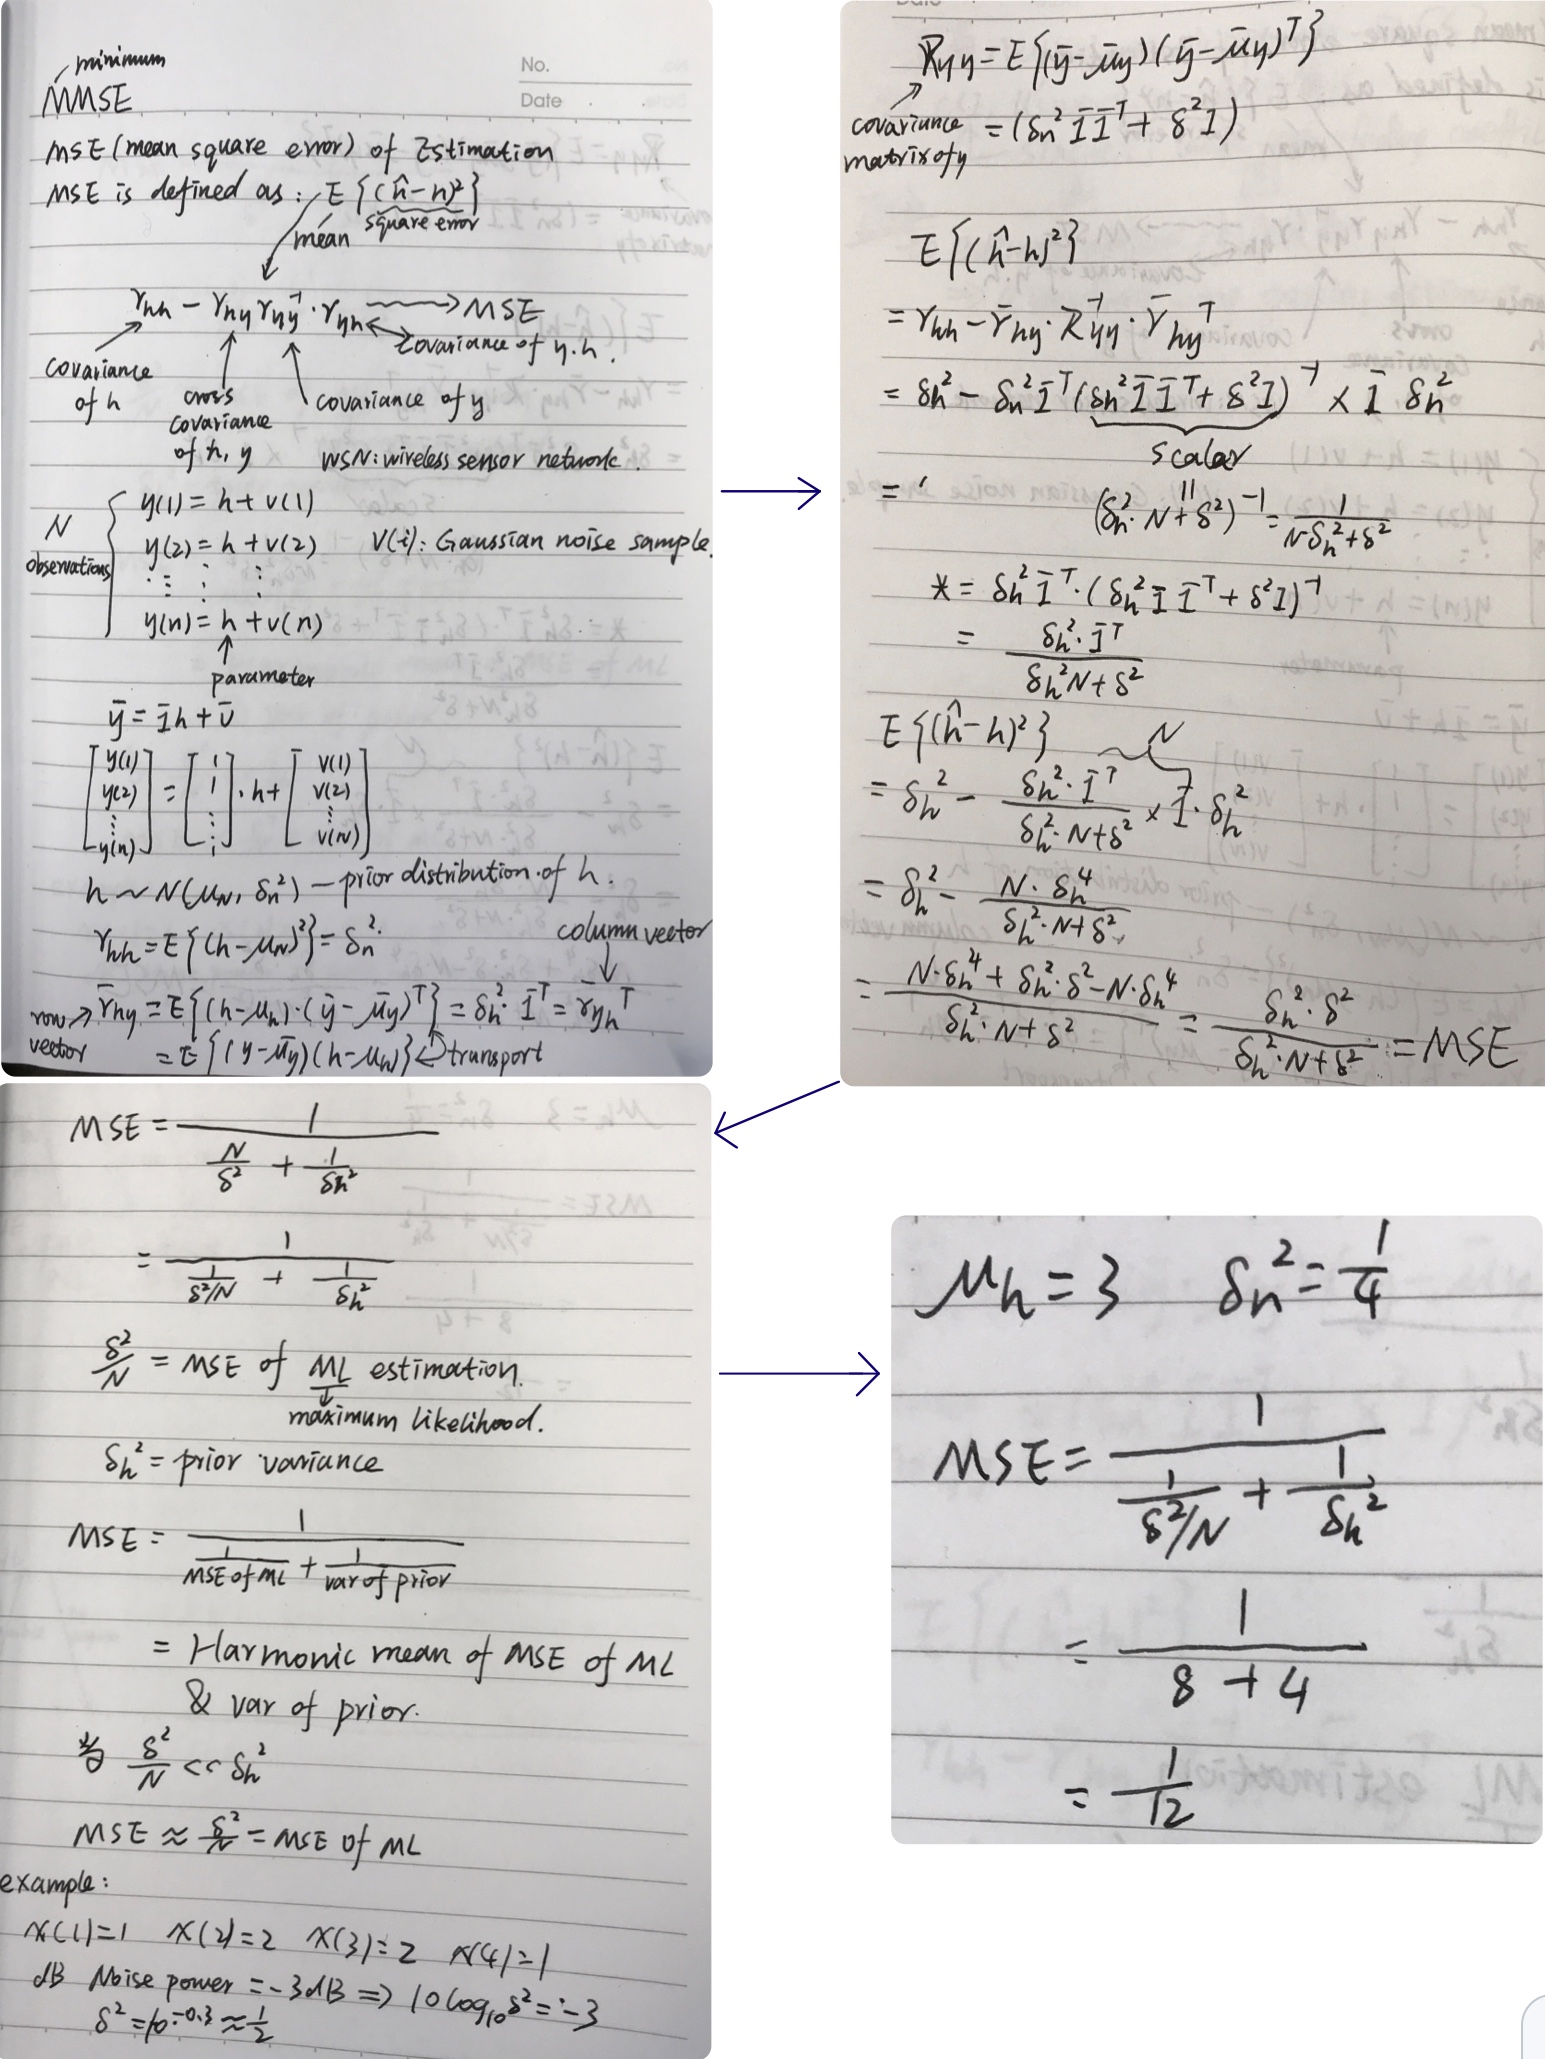 minimum
MMSE
No.
Date
MSE (mean square error) of Estimation
MSE is defined as: E{(ĥ-h)²}
mean square error
r_hh - r_hy r_yy⁻¹ · r_yh → MSE
covariance of h
cross covariance of h, y
covariance of y
covariance of y.h.
WSN: wireless sensor network.
N observations
y(1) = h + v(1)
y(2) = h + v(2) V(i): Gaussian noise sample.
⋮ = ⋮ ⋮
y(n) = h + v(n)
parameter
ȳ = 1̄h + v̄
[y(1) y(2) ⋮ y(n)] = [1 1 ⋮ 1] · h + [v(1) v(2) ⋮ v(N)]
h ~ N(μ_N, δ_n²) — prior distribution of h.
r_hh = E{(h-μ_N)²} = δ_n²
column vector
row vector → r̄_hy = E{(h-μ_h)·(ȳ-μ̄_y)ᵀ} = δ_h² · 1̄ᵀ = r̄_yhᵀ
= E{(y-μ̄_y)(h-μ_h)} transport
R_yy = E{(ȳ-μ̄_y)(ȳ-μ̄_y)ᵀ}
covariance matrix of y
= (δ_n² 1̄ 1̄ᵀ + δ² I)
E{(ĥ-h)²}
= r_hh - r̄_hy · R_yy⁻¹ · r̄_hyᵀ
= δ_h² - δ_n² 1̄ᵀ (δ_h² 1̄ 1̄ᵀ + δ² I)⁻¹ × 1̄ δ_h²
scalar
= (δ_h² · N + δ²)⁻¹ = 1/(N·δ_h² + δ²)
* = δ_h² 1̄ᵀ · (δ_h² 1̄ 1̄ᵀ + δ² I)⁻¹
= δ_h² · 1̄ᵀ / (δ_h² N + δ²)
E{(ĥ-h)²} N
= δ_h² - δ_h² · 1̄ᵀ / (δ_h² · N + δ²) × 1̄ · δ_h²
= δ_h² - N · δ_h⁴ / (δ_h² · N + δ²)
= (N·δ_h⁴ + δ_h²·δ² - N·δ_h⁴) / (δ_h² · N + δ²) = δ_h² · δ² / (δ_h² · N + δ²) = MSE
MSE = 1 / (N/δ² + 1/δ_h²)
= 1 / (1/(δ²/N) + 1/δ_h²)
δ²/N = MSE of ML estimation.
maximum likelihood.
δ_h² = prior variance
MSE = 1 / (1/MSE of ML + 1/var of prior)
= Harmonic mean of MSE of ML
& var of prior.
当 δ²/N << δ_h²
MSE ≈ δ²/N = MSE of ML
example:
x(1)=1 x(2)=2 x(3)=2 x(4)=1
dB Noise power = -3dB ⇒ 10 log₁₀ δ² = -3
δ² = 10^-0.3 ≈ 1/2
μ_h = 3 δ_n² = 1/4
MSE = 1 / (1/(δ²/N) + 1/δ_h²)
= 1 / (8 + 4)
= 1/12